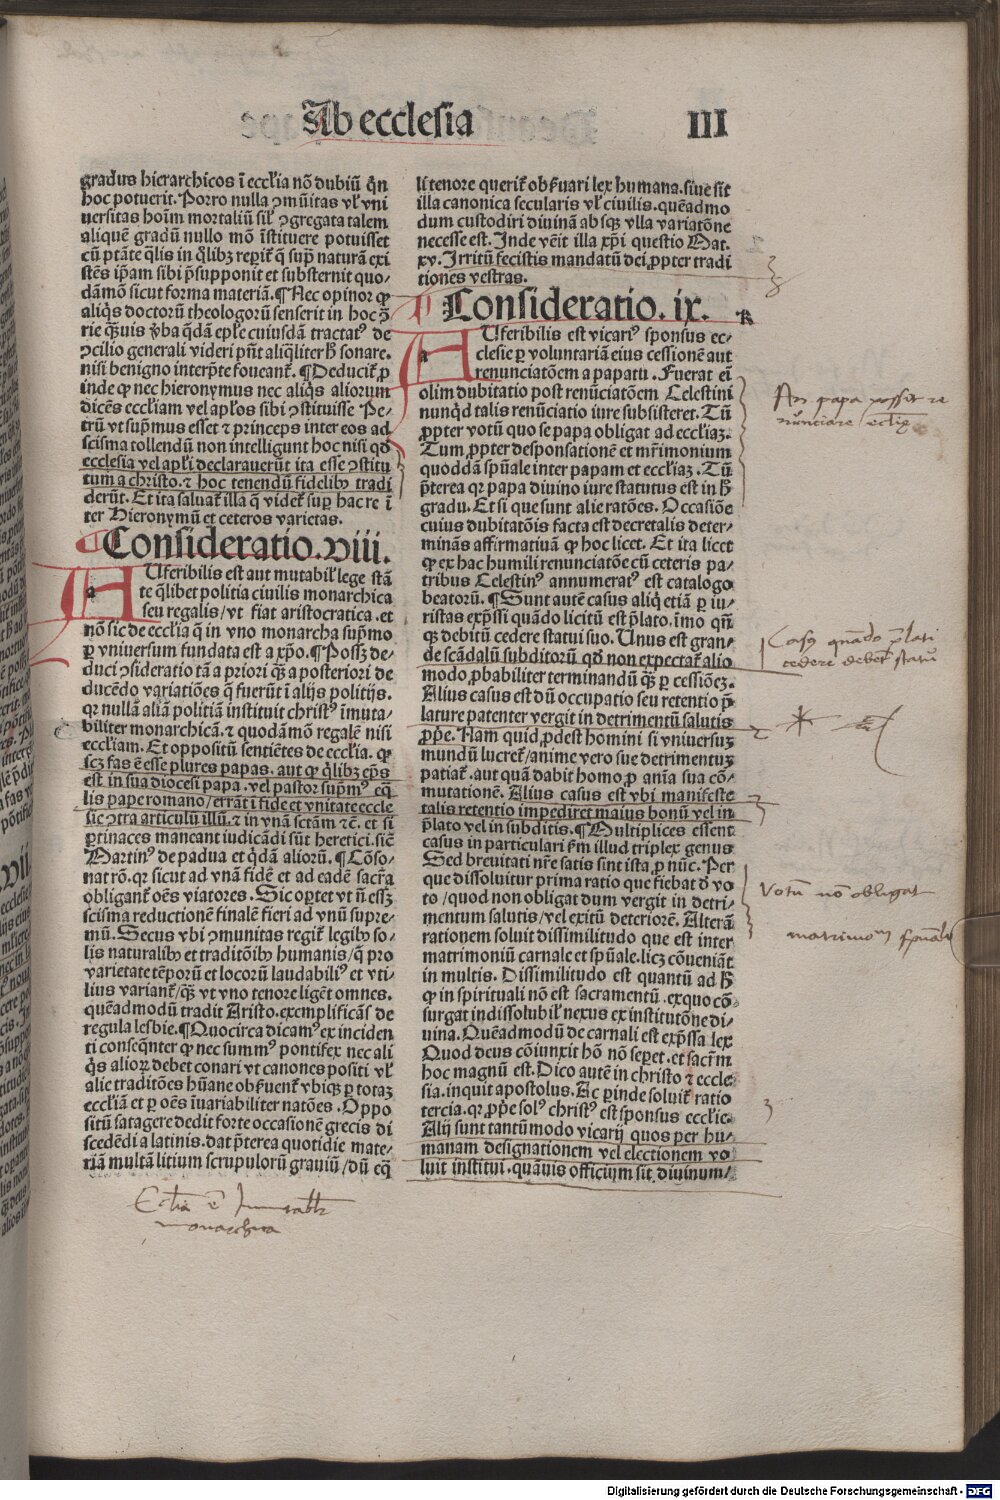 Ab ecclesia
III
gradus hierarchicos ī eccl'ia nō dubiū q̄n
hoc potuerit. Porro nulla ꝯmūitas vl' vni
uersitas hoīm mortaliū sil' ꝯgregata talem
aliquē gradū nullo mō īstituere potuisset
cū ptāte q̄lis in q̄libꝫ reperit' q̄ sup̄ naturā exi
stēs ip̄am sibi p̄supponit et substernit quo-
dāmō sicut forma materiā. ¶ Nec opinor ꝙ
aliq̇s doctorū theologorū senserit in hoc ꝯ̄
rie q̄ꝫuis v̄ba q̄dā ep̄le cuiusdā tractatꝰ de
ꝯcilio generali videri p̄nt aliq̄liter h̄ sonare.
nisi benigno interp̄te foueant'. ¶ Deducit' ꝓ
inde ꝙ nec hieronymus nec aliq̇s aliorum
dicēs eccl'iam vel ap̄los sibi ꝯstituisse Pe-
trū vt sup̄mus esset ⁊ princeps inter eos ad
scisma tollendū non intelligunt hoc nisi qd̄
ecclesia vel ap̄l'i declarauerūt ita esse ꝯstitu
tum a christo. ⁊ hoc tenendū fidelibꝰ tradi
derūt. Et ita saluat' illa q̄ videt' sup̄ hac re ī
ter Hieronymū et ceteros varietas.
¶ Consideratio. viii.
AUferibilis est aut mutabil' lege stā
te q̄libet politia ciuilis monarchica
seu regalis/vt fiat aristocratica. et
nō sic de eccl'ia q̄ in vno monarcha sup̄mo
ꝑ vniuersum fundata est a xp̄o. ¶ Possꝫ de-
duci ꝯsideratio tā a priori q̄ꝫ a posteriori de
ducēdo variatiōes q̄ fuerūt ī alijs politijs.
qꝛ nullā aliā politiā instituit christꝰ īmuta-
biliter monarchicā. ⁊ quodā mō regalē nisi
eccl'iam. Et oppositū sentiētes de eccl'ia. ꝙ
scꝫ fas ē esse plures papas. aut ꝙ q̄libꝫ ep̄s
est in sua diocesi papa. vel pastor sup̄mꝰ eq̄
lis pape romano/errāt ī fide et vnitate eccle
sie ꝯtra articulū illū. ⁊ in vnā sctām ⁊c̄. et si
ꝑtinaces maneant iudicādi sūt heretici. sic̄
Martinꝰ de padua et q̇dā aliorū. ¶ Cōso-
nat rō. qꝛ sicut ad vnā fidē et ad eadē sacr̄a
obligant' oēs viatores. Sic oꝑtet vt ūs essꝫ
scisma reductionē finalē fieri ad vnū supre-
mū. Secus vbi ꝯmunitas regit' legibꝰ so-
lis naturalibꝰ et traditōibꝰ humanis/q̄ pro
varietate tēporū et locorū laudabilis' et vti-
lius variant'/q̄ꝫ vt vno tenore ligēt omnes.
quēadmodū tradit Aristo. exemplificās de
regula lesbie. ¶ Quocirca dicamꝰ ex inciden
ti conseq̄nter ꝙ nec summꝰ pontifex nec ali
q̇s alioꝝ debet conari vt canones positi vl'
alie traditōes hūane obf̄uent' vbiqꝫ ꝑ totaꝫ
eccl'iā et ꝑ oēs īuariabiliter natōes. Oppo
sitū satagere dedit forte occasionē grecis di
scedēdi a latinis. dat p̄terea quotidie mate-
riā multā litium scrupulorū grauiū/dū eq̄
li tenore querit' obf̄uari lex humana. siue sit
illa canonica secularis vl' ciuilis. quēadmo
dum custodiri diuinā absqꝫ vlla variatōne
necesse est. Inde vēit illa xp̄i questio Mat.
xv. Irritū fecistis mandatū dei ꝓpter tradi
tiones vestras.
¶ Consideratio. ix.
K
AUferibilis est vicariꝰ sponsus ec-
clesie ꝑ voluntariā eius cessionē aut
renunciatōem a papatu. Fuerat eī
olim dubitatio post renūciatōem Celestini
nunq̇d talis renūciatio iure subsisteret. Tū
ꝓpter votū quo se papa obligat ad eccl'iaꝫ.
Tum ꝓpter desponsationē et mr̄imonium
quoddā sp̄uale inter papam et eccl'iaꝫ. Tū
p̄terea qꝛ papa diuino iure statutus est in h̄
gradu. Et si que sunt alie ratōes. Occasiōe
cuius dubitatōis facta est decretalis deter-
minās affirmatiuā ꝙ hoc licet. Et ita licet
ꝙ ex hac humili renunciatōe cū ceteris pa-
tribus Celestinꝰ annumeratꝰ est catalogo
beatorū. ¶ Sunt autē casus aliq̇ etiā ꝑ iu-
ristas exp̄ssi quādo licitū est p̄lato. īmo qn̄
qꝫ debitū cedere statui suo. Unus est gran-
de scādalū subditorū qd̄ non expectat' alio
modo ꝓbabiliter terminandū q̄ꝫ ꝑ cessiōeꝫ.
Alius casus est dū occupatio seu retentio p̄
lature patenter vergit in detrimentū salutis
ꝓp̄e. Nam quid ꝓdest homini si vniuersuꝫ
mundū lucret'/anime vero sue detrimentuꝫ
patiat'. aut quā dabit homo ꝓ anīa sua cō-
mutationē. Alius casus est vbi manifeste
talis retentio impediret maius bonū vel in
p̄lato vel in subditis. ¶ Multiplices essent
casus in particulari f̄m illud triplex genus
Sed breuitati nr̄e satis sint ista ꝓ nūc. Per
que dissoluitur prima ratio que fiebat d̄ vo
to/quod non obligat dum vergit in detri-
mentum salutis/vel exitū deteriorē. Alterā
rationem soluit dissimilitudo que est inter
matrimoniū carnale et sp̄uale. licꝫ cōueniāt
in multis. Dissimilitudo est quantū ad h̄
ꝙ in spirituali nō est sacramentū. ex quo cō-
surgat indissolubil' nexus ex institutōne di-
uina. Quēadmodū de carnali est exp̄ssa lex
Quod deus cōiunxit hō nō seꝑet. et sacr̄m
hoc magnū est. Dico autē in christo ⁊ eccle
sia. inquit apostolus. Ac ꝑinde soluit' ratio
tercia. qꝛ ꝓp̄e solꝰ christꝰ est sponsus ecclie.
Alij sunt tantūmodo vicarij quos per hu-
manam designationem vel electionem vo
luit institui. quāuis officium sit diuinum/
An papa possit re
nūnciare
Casꝰ quādo p̄lati
cedere debēt statū
Votū nō obligat
matrimoꝫ spūale
Eccl'ia ē Immutabil'r
monarchica
Digitalisierung gefördert durch die Deutsche Forschungsgemeinschaft - DFG